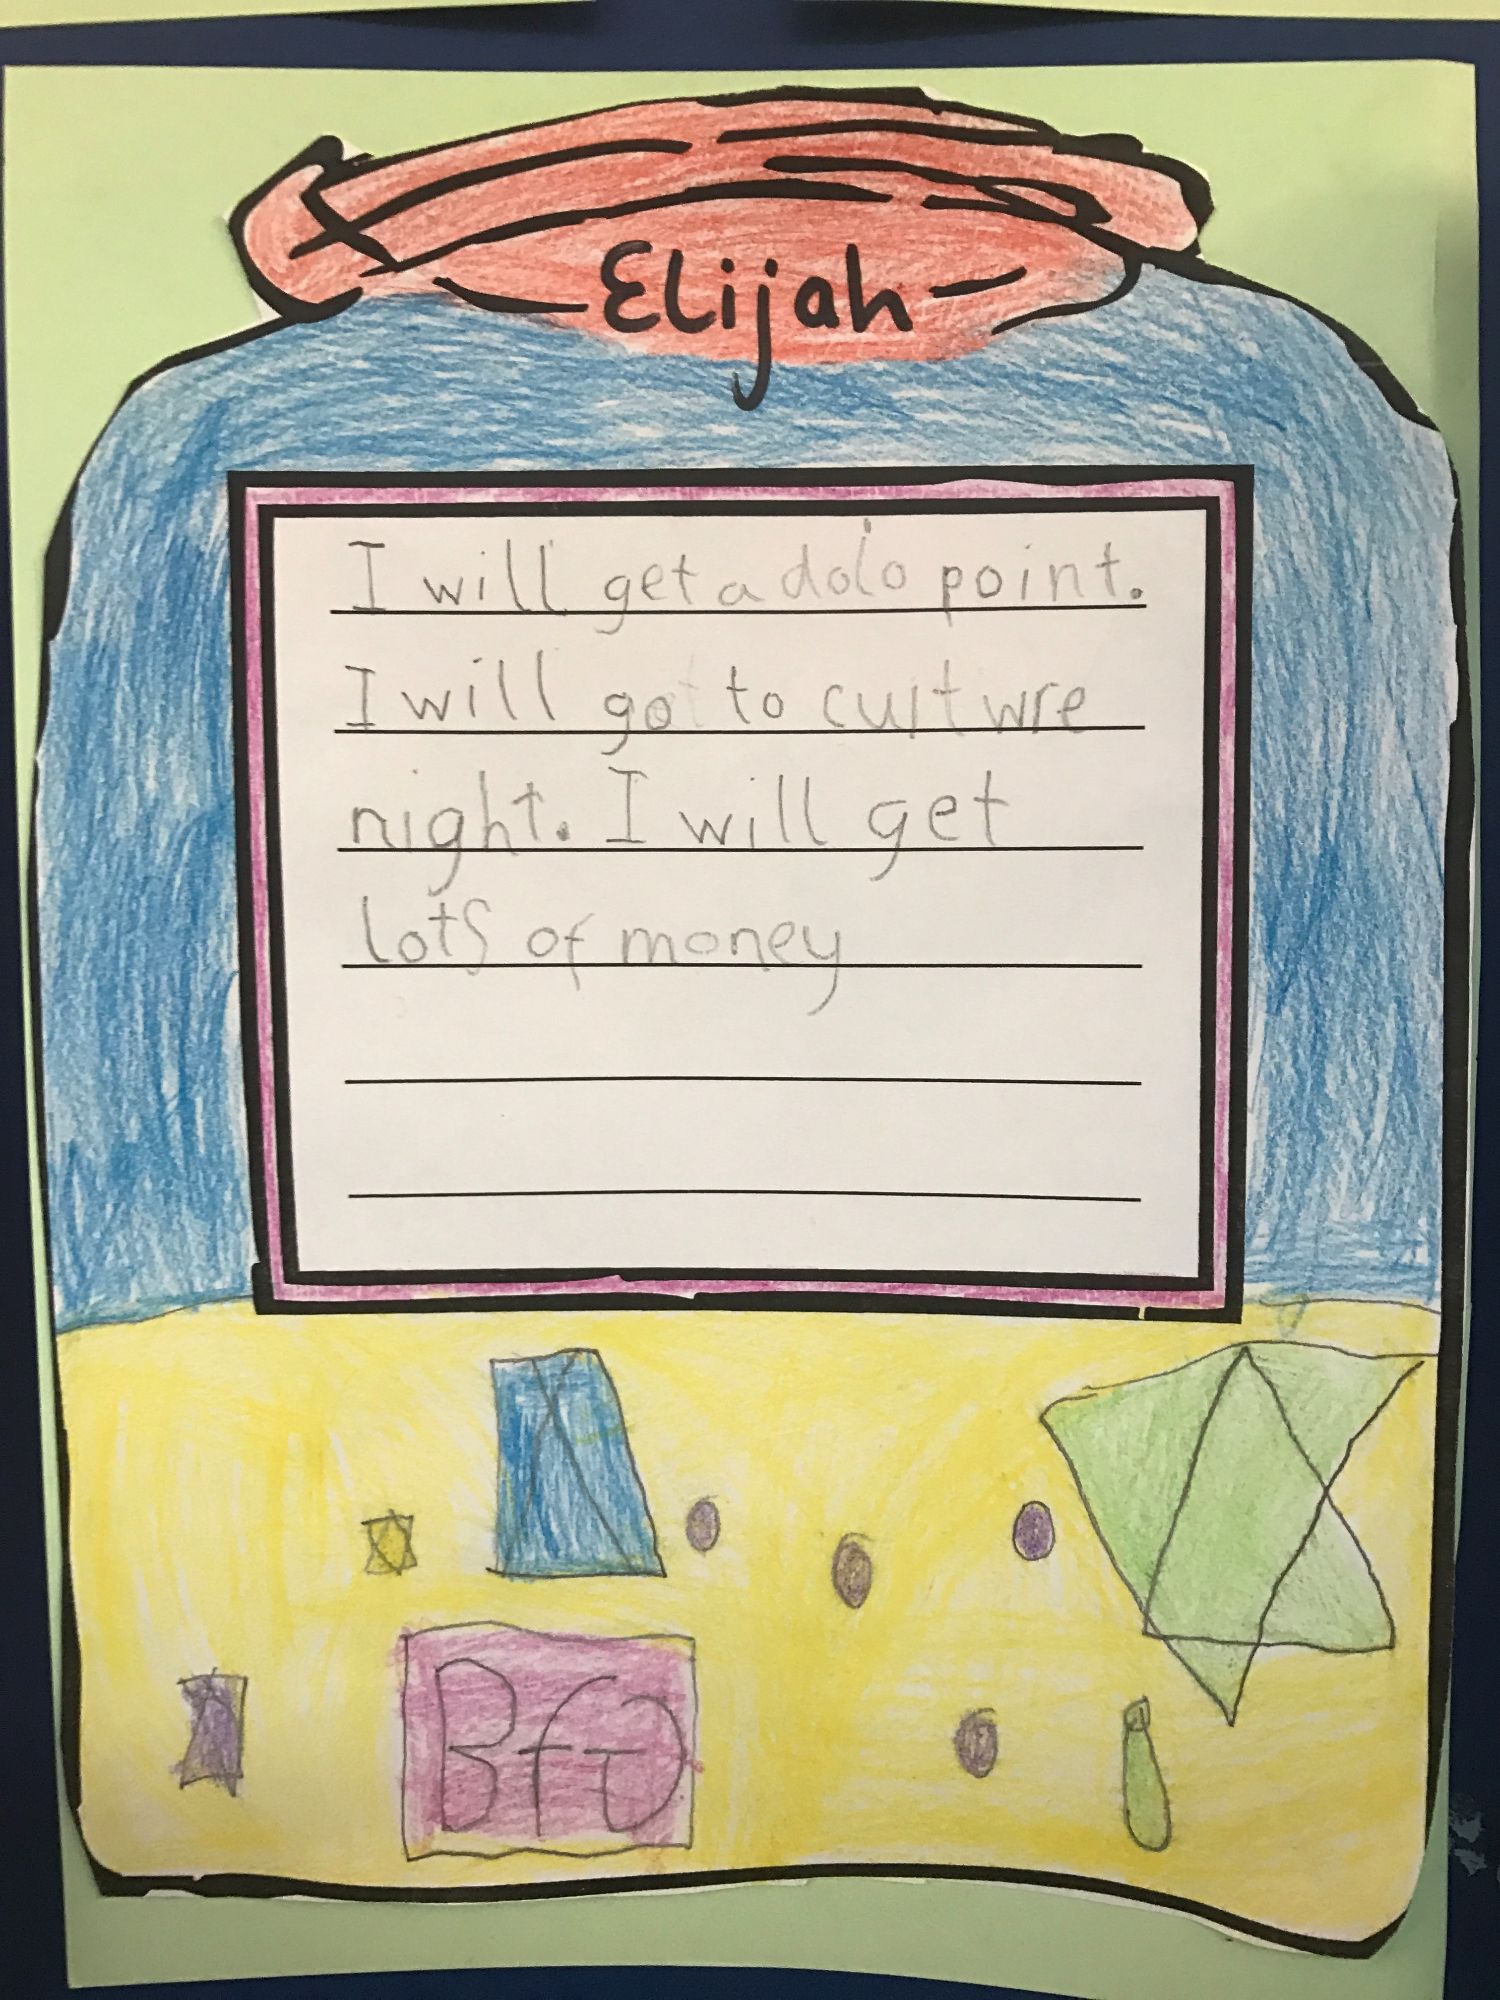 Elijah
I will get a dojo point.
I will go to cultwre
night. I will get
lots of money
BFG